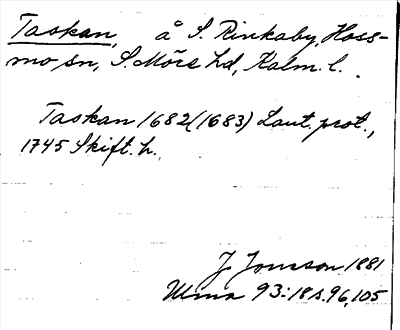 Taskan, å S. Rinkaby, Hoss-
mo sn, S. Möre hd, Kalm. l.
Taskan 1682 (1683) Lant. prot.,
1745 Skift. h.
J. Jonsson 1881
Ulma 93:18 s. 96, 105